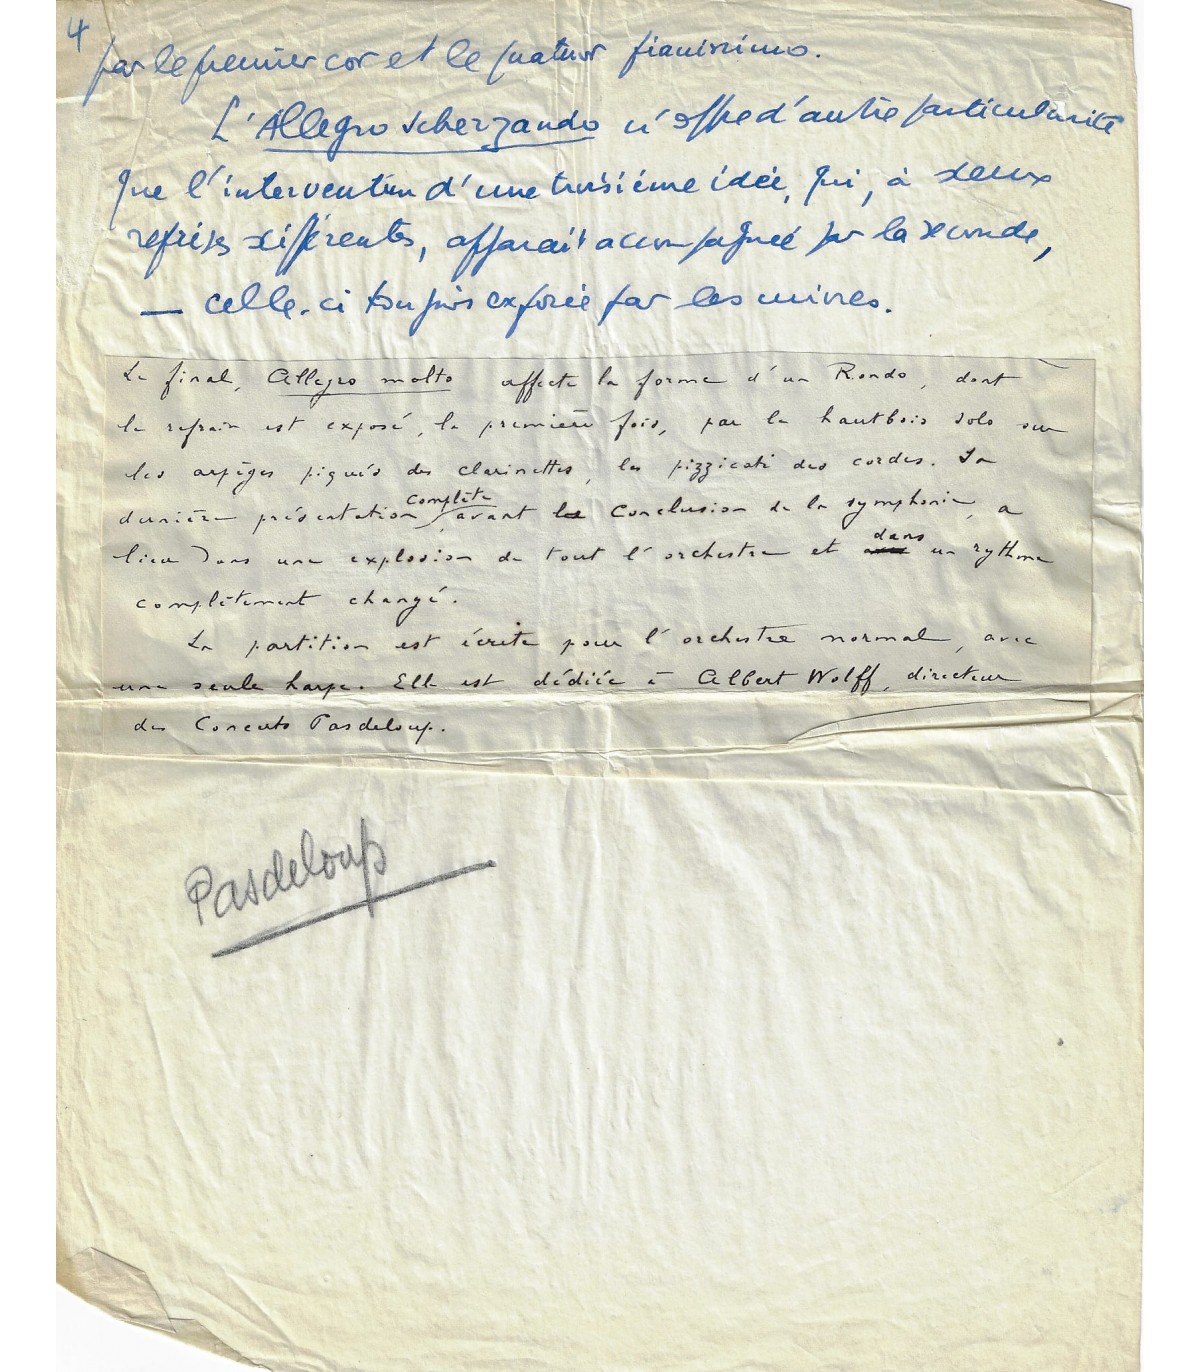 4
par le premier cor et le quatuor pianissimo.
L'Allegro scherzando n'offre d'autre particularité
que l'intervention d'une troisième idée, qui, à deux
reprises différentes, apparait accompagnée par la seconde,
— celle-ci toujours exposée par les cuivres.
Le final, Allegro molto affecte la forme d'un Rondo, dont
le refrain est exposé, la première fois, par le hautbois solo sur
les arpèges piqués des clarinettes, les pizzicati des cordes. Sa
dernière présentation complète, avant la Conclusion de la symphonie, a
lieu dans une explosion de tout l'orchestre et dans un rythme
complètement changé.
La partition est écrite pour l'orchestre normal, avec
une seule harpe. Elle est dédiée à Albert Wolff, directeur
des Concerts Pasdeloup.
Pasdeloup